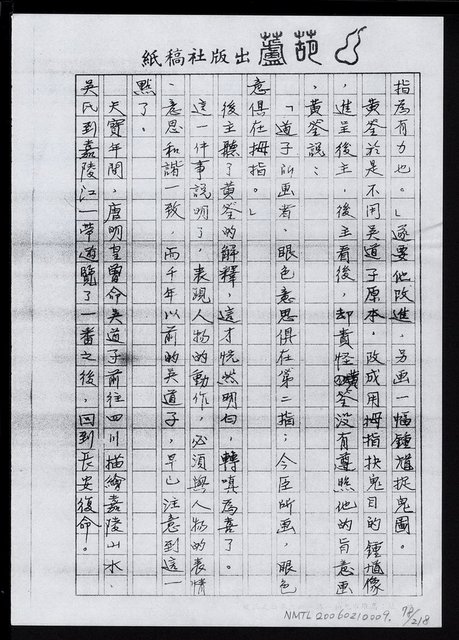 葫蘆出版社稿紙
指為有力也。」遂要他改進，另画一幅鍾馗捉鬼圖。
黃筌於是不用吳道子原本，改成用拇指抉鬼目的鍾馗像
，進呈後主，後主看後，却責怪黃筌没有遵照他的旨意画
，黃筌說：
「道子所画者，眼色意思俱在第二指；今臣所画，眼色
意俱在拇指。」
後主聽了黃筌的解釋，這才恍然明白，轉嗔為喜了。
這一件事説明了，表現人物的動作，必須與人物的表情
、意思和諧一致，而千年以前的吳道子，早已注意到這一
點了。
天寶年間，唐明皇曾命吳道子前往四川描繪嘉陵山水，
吳氏到嘉陵江一帶遊覽了一番之後，回到長安復命。
NMTL20060210009. 78/218